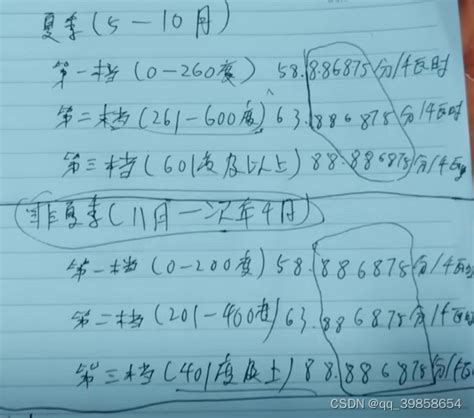 夏季(5—10月)
第一档(0-260度) 58.886875分/千瓦时
第二档(261-600度) 63.886875分/千瓦时
第三档(601度及以上) 88.886875分/千瓦时
非夏季(11月—次年4月)
第一档(0-200度) 58.886875分/千瓦时
第二档(201-400度) 63.886875分/千瓦时
第三档(401度及上) 88.886875分/千瓦
CSDN @qq_39858654